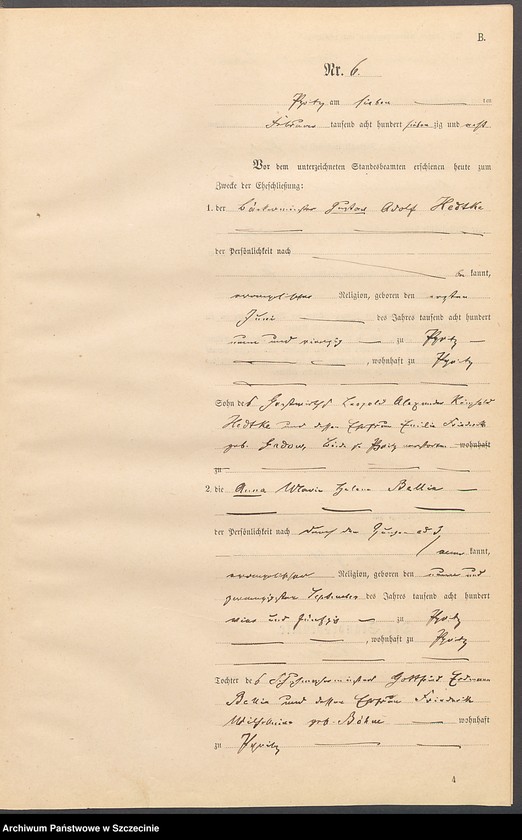 B.
Nr. 6.
Pyritz am sieben ten
Februar tausend acht hundert sieben zig und acht
Vor dem unterzeichneten Standesbeamten erschienen heute zum
Zwecke der Eheschließung:
1. der Bäckermeister Gustav Adolf Hedtke
der Persönlichkeit nach
be kannt,
evangelischer Religion, geboren den ersten
Juni des Jahres tausend acht hundert
neun und vierzig zu Pyritz
, wohnhaft zu Pyritz
Sohn des Gastwirths Leopold Alexander Reinhold
Hedtke und dessen Ehefrau Emilie Friederike
geb. Gadow, Beide in Pyritz verstorben wohnhaft
zu
2. die Anna Marie Helene Bellin
der Persönlichkeit nach durch den Zeugen ad 3
aner kannt,
evangelischer Religion, geboren den neun und
zwanzigsten September des Jahres tausend acht hundert
vier und fünfzig zu Pyritz
, wohnhaft zu Pyritz
Tochter des Schuhmachermeisters Gottfried Erdmann
Bellin und dessen Ehefrau Friederike
Wilhelmine geb. Böhne wohnhaft
zu Pyritz
4
Archiwum Państwowe w Szczecinie